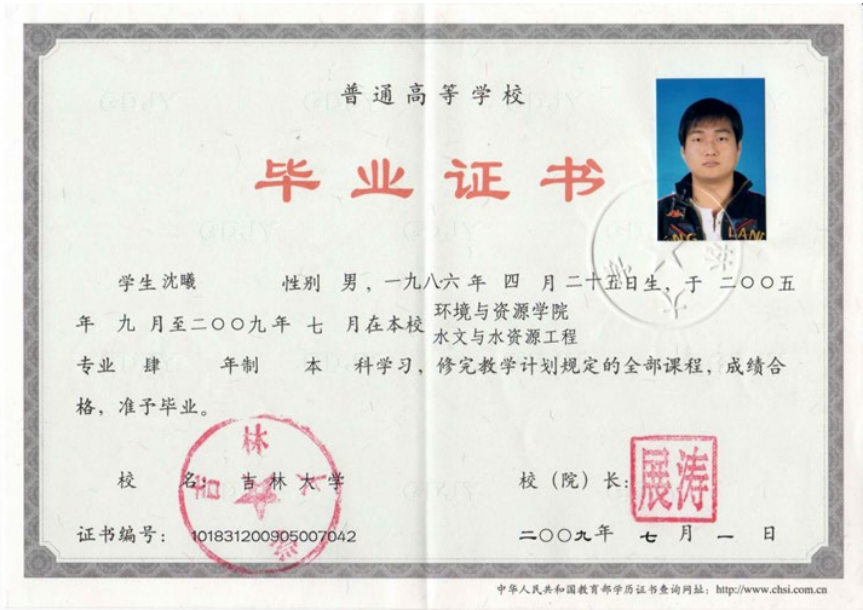 普通高等学校
毕业证书
学生 沈曦 性别 男，一九八六年 四 月 二十五日生，于 二〇〇五
年 九 月至二〇〇九年 七 月在本校 环境与资源学院
水文与水资源工程
专业 肆 年制 本 科学习，修完教学计划规定的全部课程，成绩合
格，准予毕业。
校 名：吉林大学
校（院）长：
展涛
吉林大学
证书编号： 101831200905007042
二〇〇九年 七 月 一 日
中华人民共和国教育部学历证书查询网址：http://www.chsi.com.cn